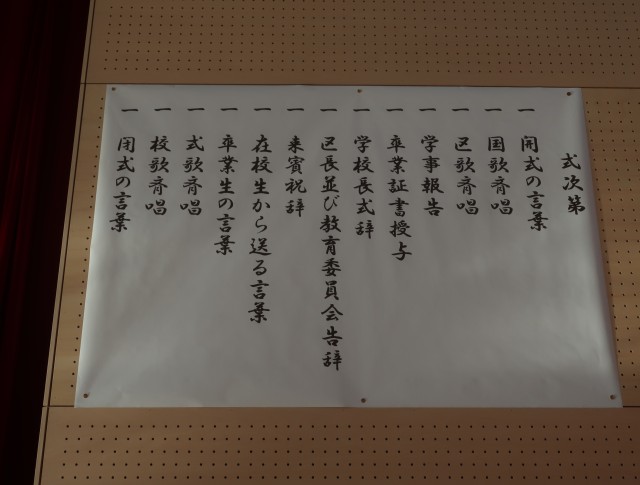 式次第
一 開式の言葉
一 国歌斉唱
一 区歌斉唱
一 学事報告
一 卒業証書授与
一 学校長式辞
一 区長並び教育委員会告辞
一 来賓祝辞
一 在校生から送る言葉
一 卒業生の言葉
一 式歌斉唱
一 校歌斉唱
一 閉式の言葉